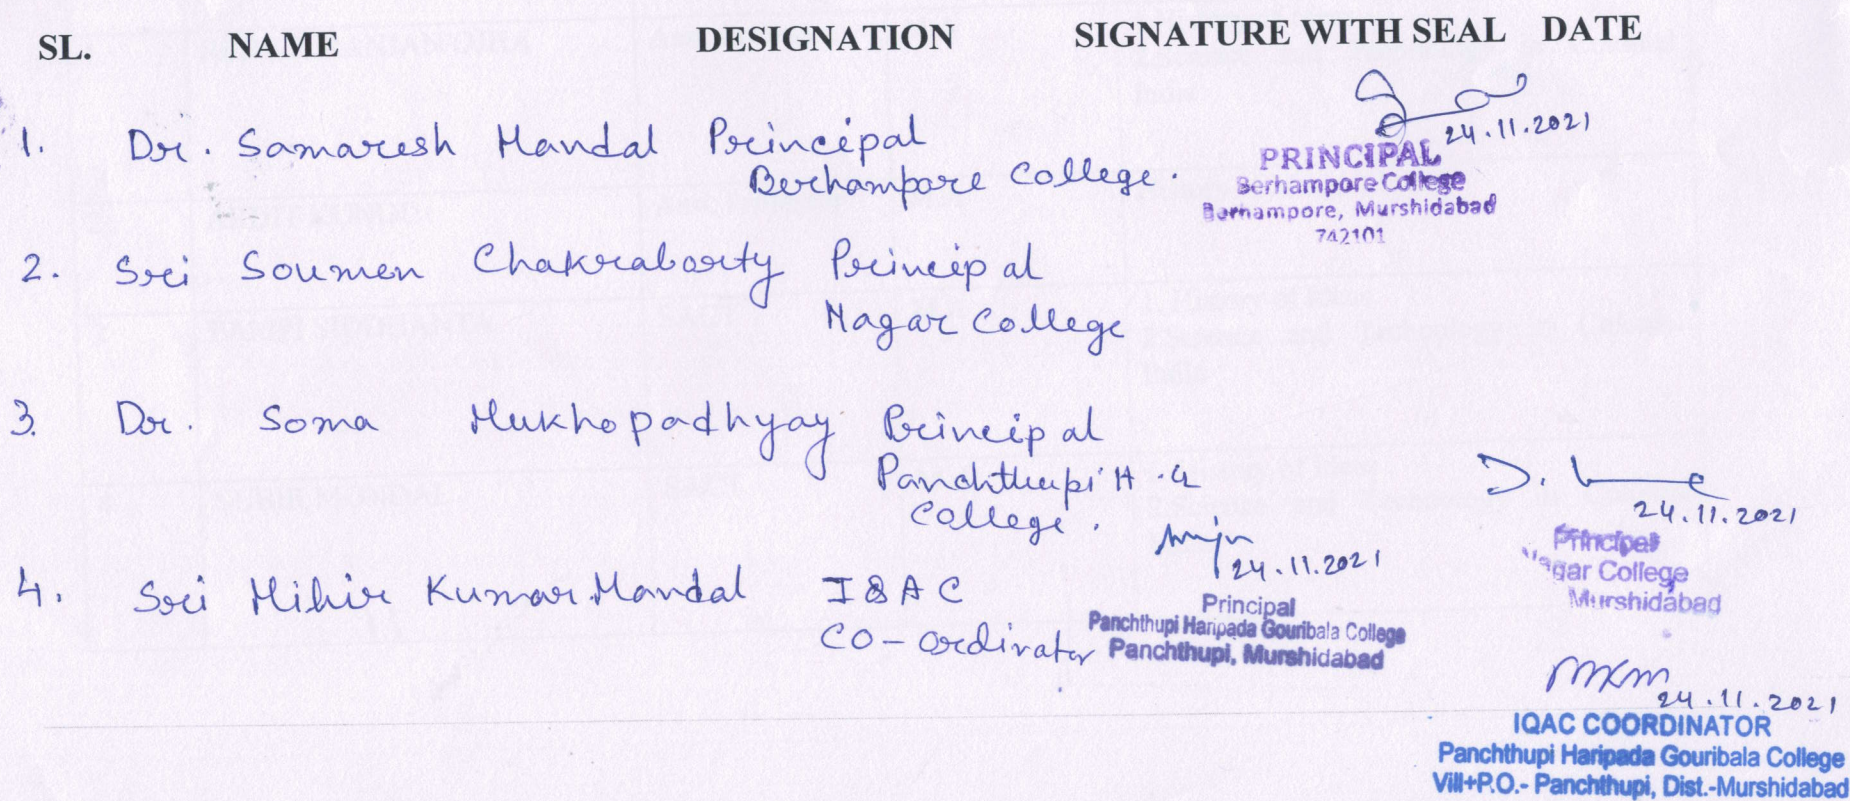 SL. NAME DESIGNATION SIGNATURE WITH SEAL DATE
1. Dr. Samaresh Mandal Principal
Berhampore College.
24.11.2021
PRINCIPAL
Berhampore College
Berhampore, Murshidabad
742101
2. Sri Soumen Chakraborty Principal
Nagar College
3. Dr. Soma Mukhopadhyay Principal
Panchthupi H.G
College.
24.11.2021
Principal
Nagar College
Murshidabad
24.11.2021
Principal
Panchthupi Haripada Gouribala College
Panchthupi, Murshidabad
4. Sri Mihir Kumar Mandal IQAC
Co-ordinator
MKM
24.11.2021
IQAC COORDINATOR
Panchthupi Haripada Gouribala College
Vill+P.O.- Panchthupi, Dist.-Murshidabad